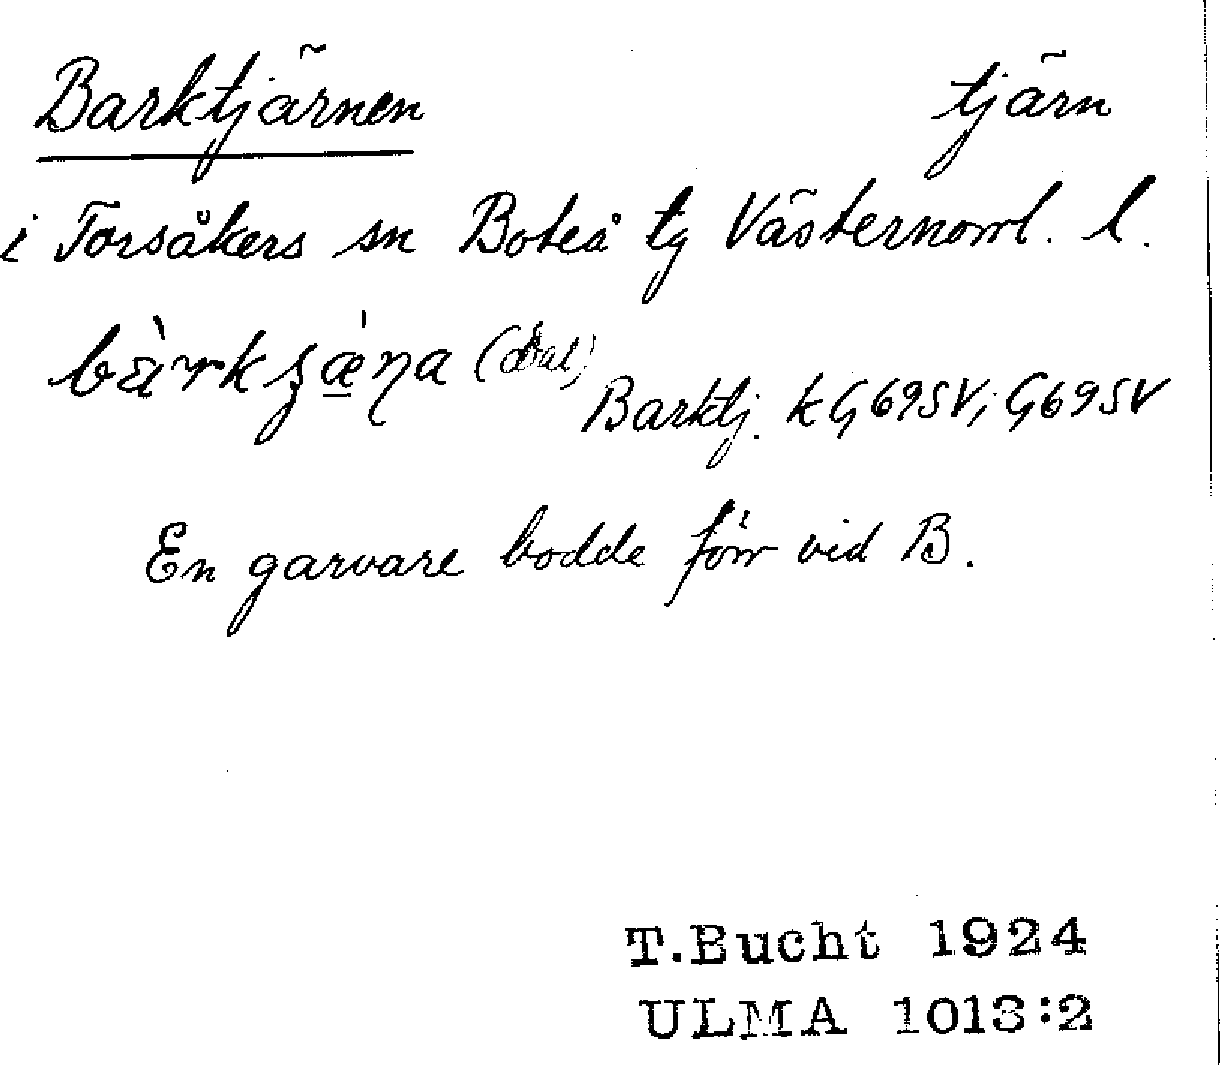 Barktjärnen tjärn
i Torsåkers sn Boteå tg Västernorrl. l.
(dat)
Barktj. k G69SV; G69SV
En garvare bodde förr vid B.
T.Bucht 1924
ULMA 1013:2